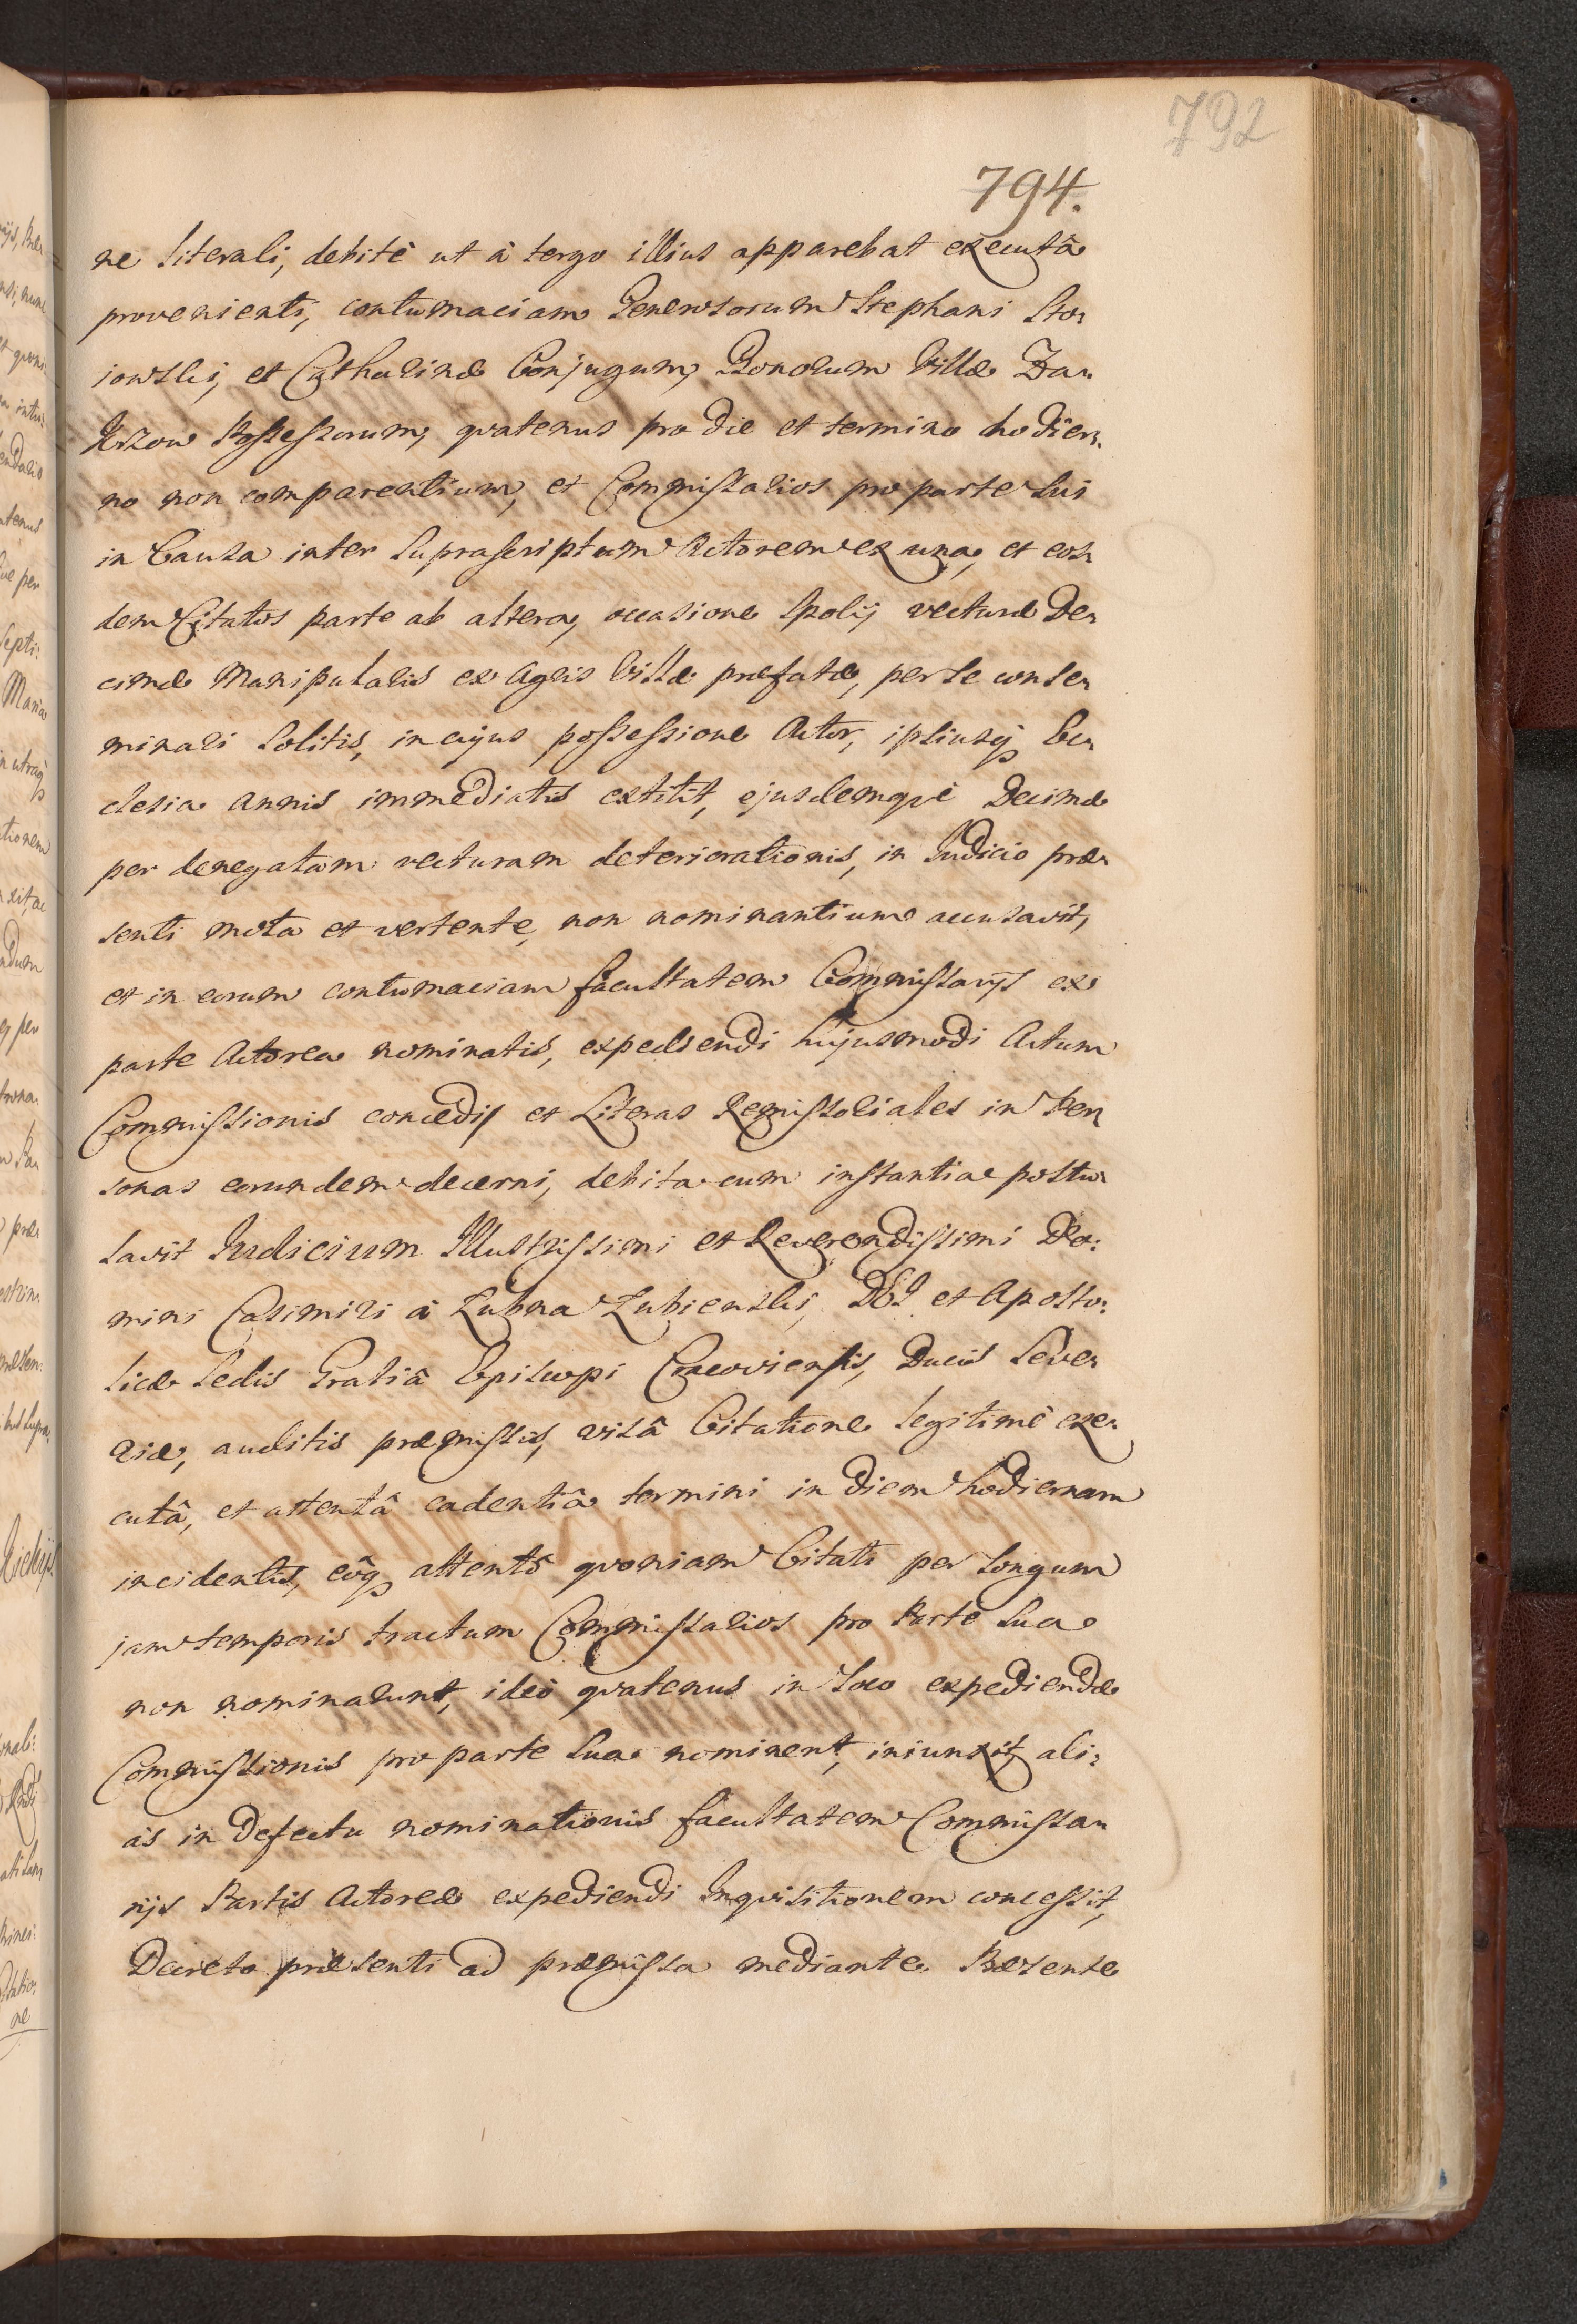 792
794.
ne literali, debitè ut à tergo illius apparebat executâ
provenienti, contumaciam Generosorum Stephani Sto,
iowski, et Catharinæ Conjugum, Bonorum Villæ Za,
krzow Possessorum, qvatenus pro die et termino hodier,
no non comparentium, et Commissarios pro parte sui
in Causa inter suprascriptum Actorem ex una, et eos,
dem Citatos parte ab altera, occasione spolij vecturæ De,
cimæ Manipularis ex Agris Villæ præfatæ, per se conse,
minari solitis, in cujus possessione Actor, ipsiusq Ec,
clesia annis immediatis extitit, ejusdemqvè Decimæ
per denegatam vecturam deteriorationis, in Judicio præ,
senti mota et vertente, non nominantium accusavit,
et in eorum contumaciam facultatem Commissarijs ex
parte Actorea nominatis, expediendi hujusmodi Actum
Commissionis concedi, et Literas Remissoriales in Per,
sonas eorundem decerni, debita cum instantia postu,
lavit Judicium Illustrissimi et Reverendissimi Do:
mini Casimiri à Łubna Łubienski, DEI et Aposto:
licæ Sedis Gratiâ Episcopi Cracoviensis, Ducis Seve,
riæ, auditis præmissis, visâ Citatione legitimè exe,
cutâ, et attentâ cadentiâ termini in diem hodiernam
incidentis, eôq attentô qvoniam Citati per longum
jam temporis tractum Commissarios pro Parte sua
non nominarunt, ideò qvatenus in loco expediendæ
Commissionis pro parte sua nominent, iniunxit, ali:
às in defectu nominationis facultatem Commissa,
rijs Partis Actoreæ expediendi Inqvisitionem concessit,
Decreto præsenti ad præmissa mediante. Præsente